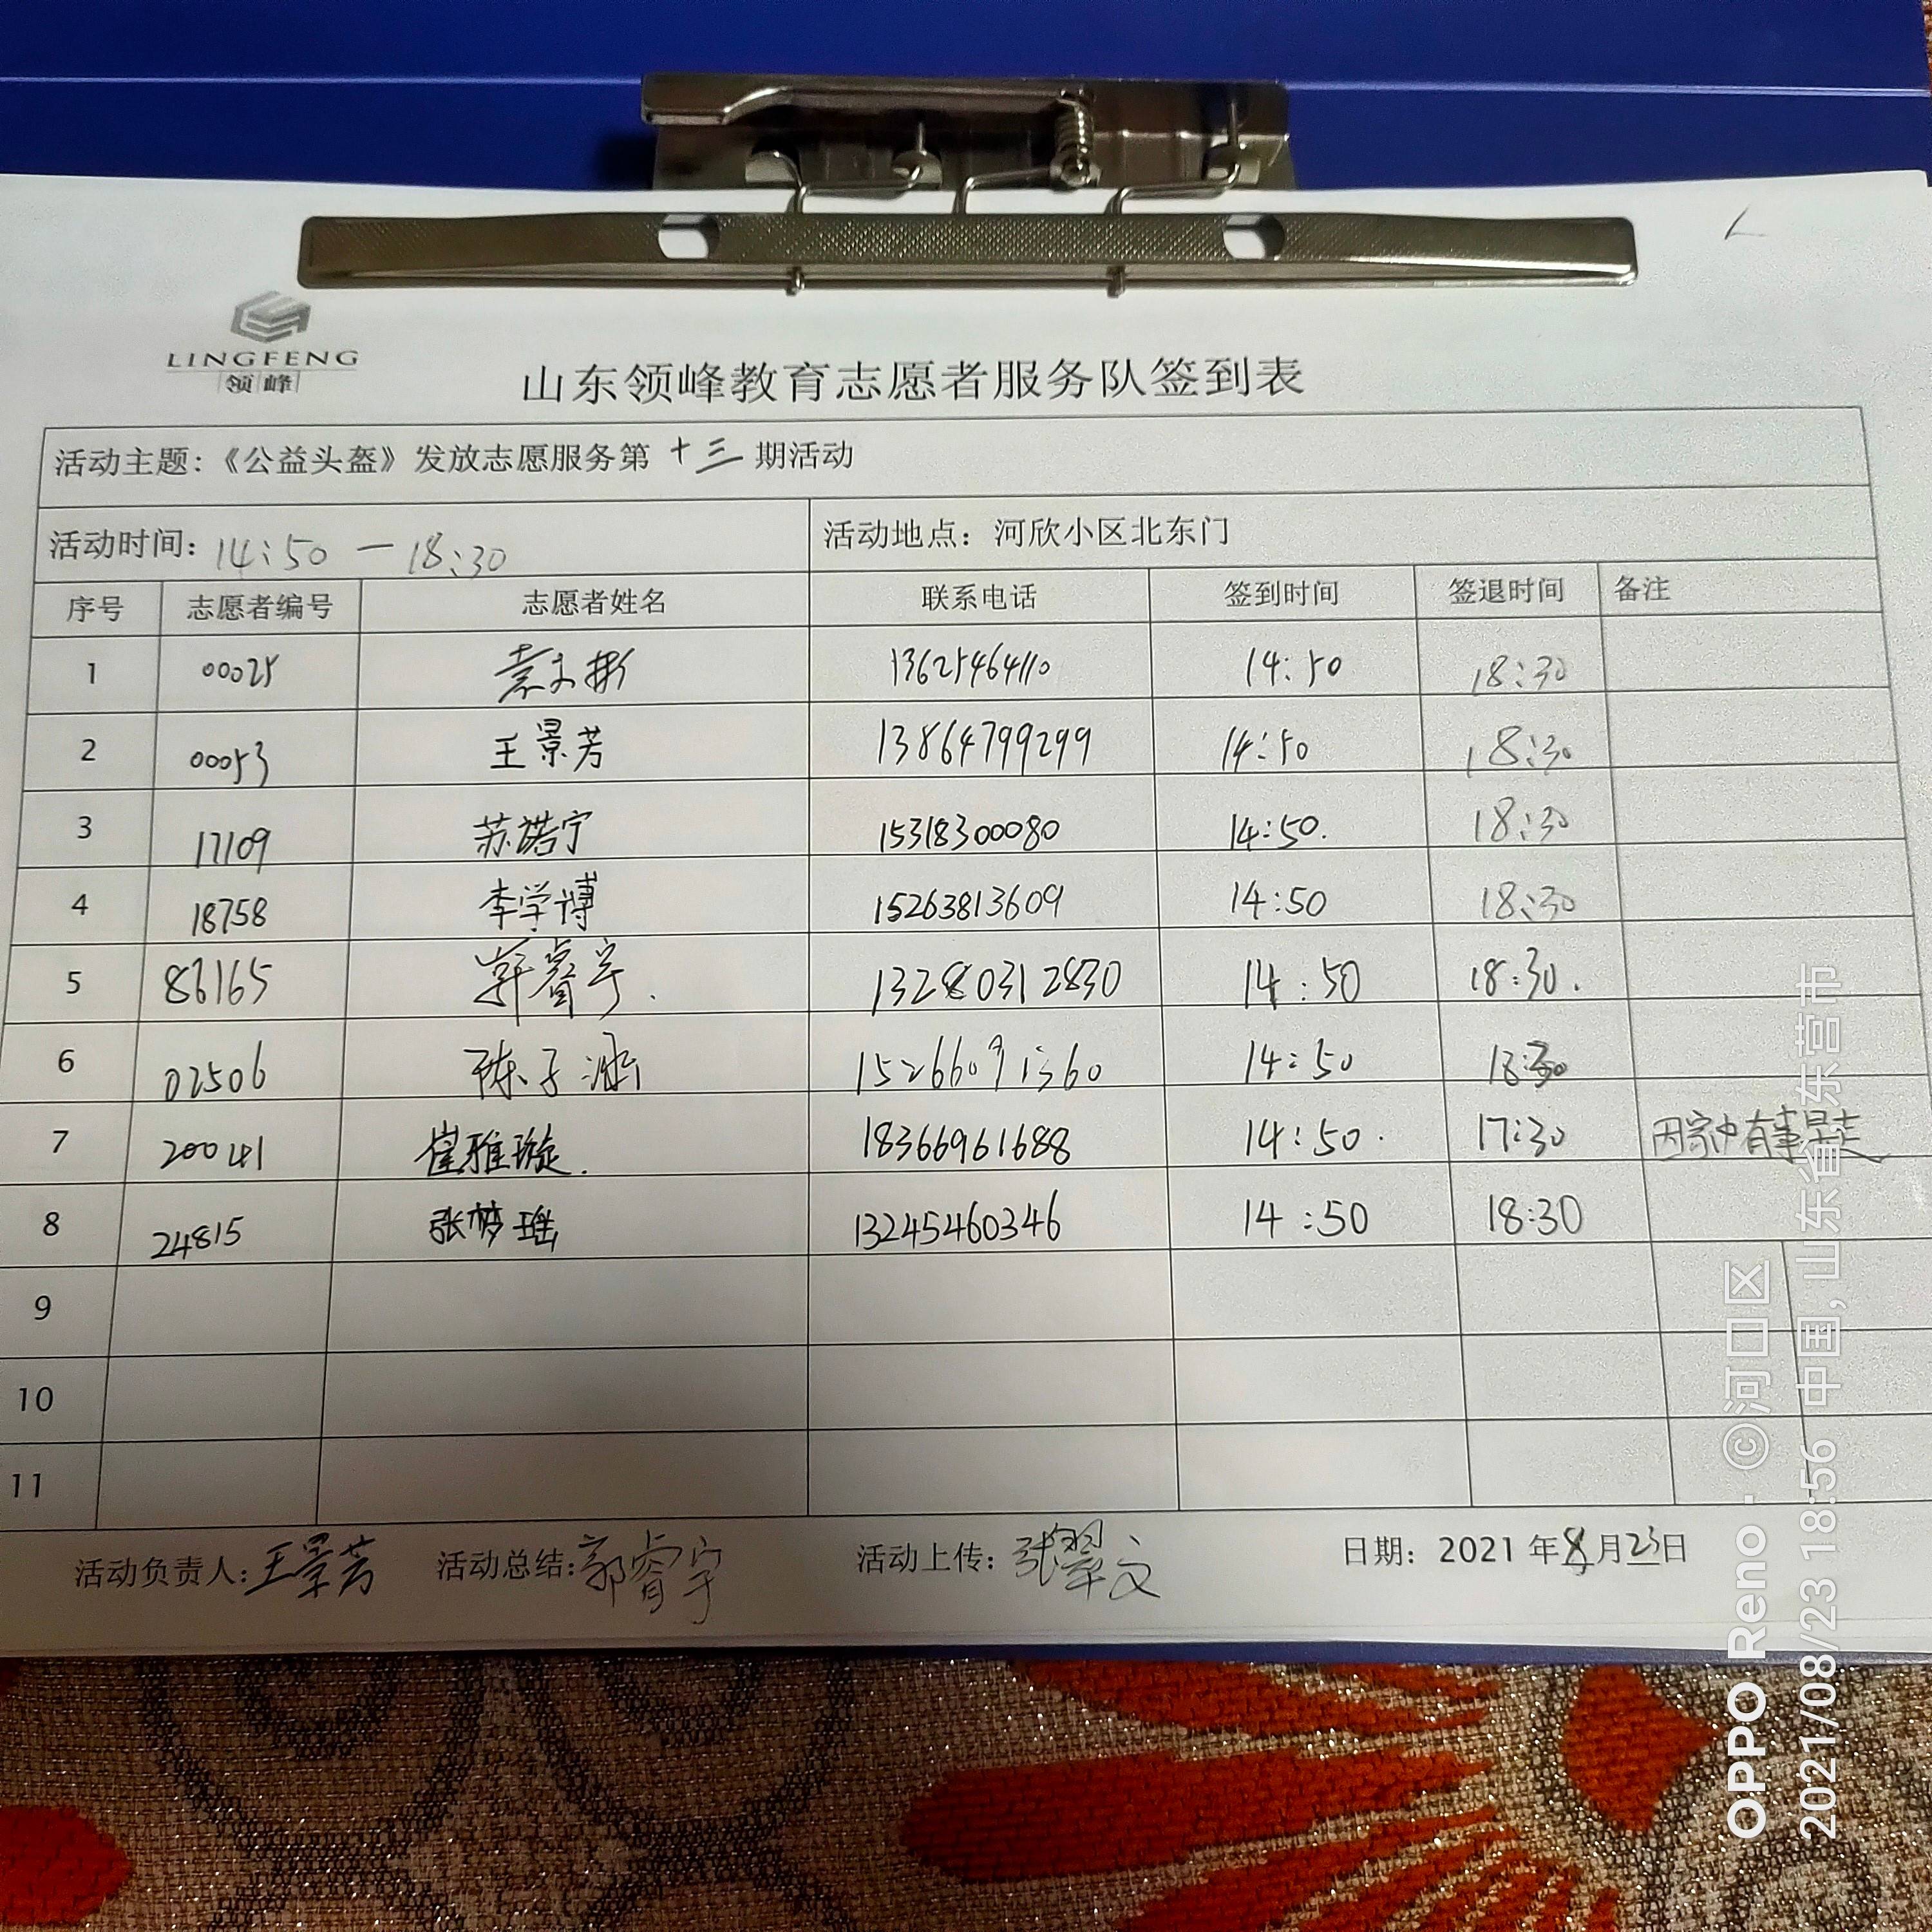 LINGFENG
领峰
山东领峰教育志愿者服务队签到表
活动主题:《公益头盔》发放志愿服务第十三期活动
活动时间: 14:50 — 18:30 活动地点: 河欣小区北东门
序号 志愿者编号 志愿者姓名 联系电话 签到时间 签退时间 备注
1 00025 袁文彬 13625464110 14:50 18:30
2 00053 王景芳 13864799299 14:50 18:30
3 17109 苏诺宁 15318300080 14:50. 18:30
4 18758 李学博 15263813609 14:50 18:30
5 83165 郭睿宇. 13280312830 14:50 18:30.
6 02506 陈子涵 14:50 18:30
7 20041 崔雅璇. 18366961688 14:50. 17:30 因家中有事早走
8 24815 张梦瑶 13245460346 14:50 18:30
9
10
11
活动负责人: 王景芳 活动总结: 郭睿宇 活动上传: 张翠文 日期: 2021年8月23日
OPPO Reno · ©河口区
2021/08/23 18:56 中国, 山东省东营市